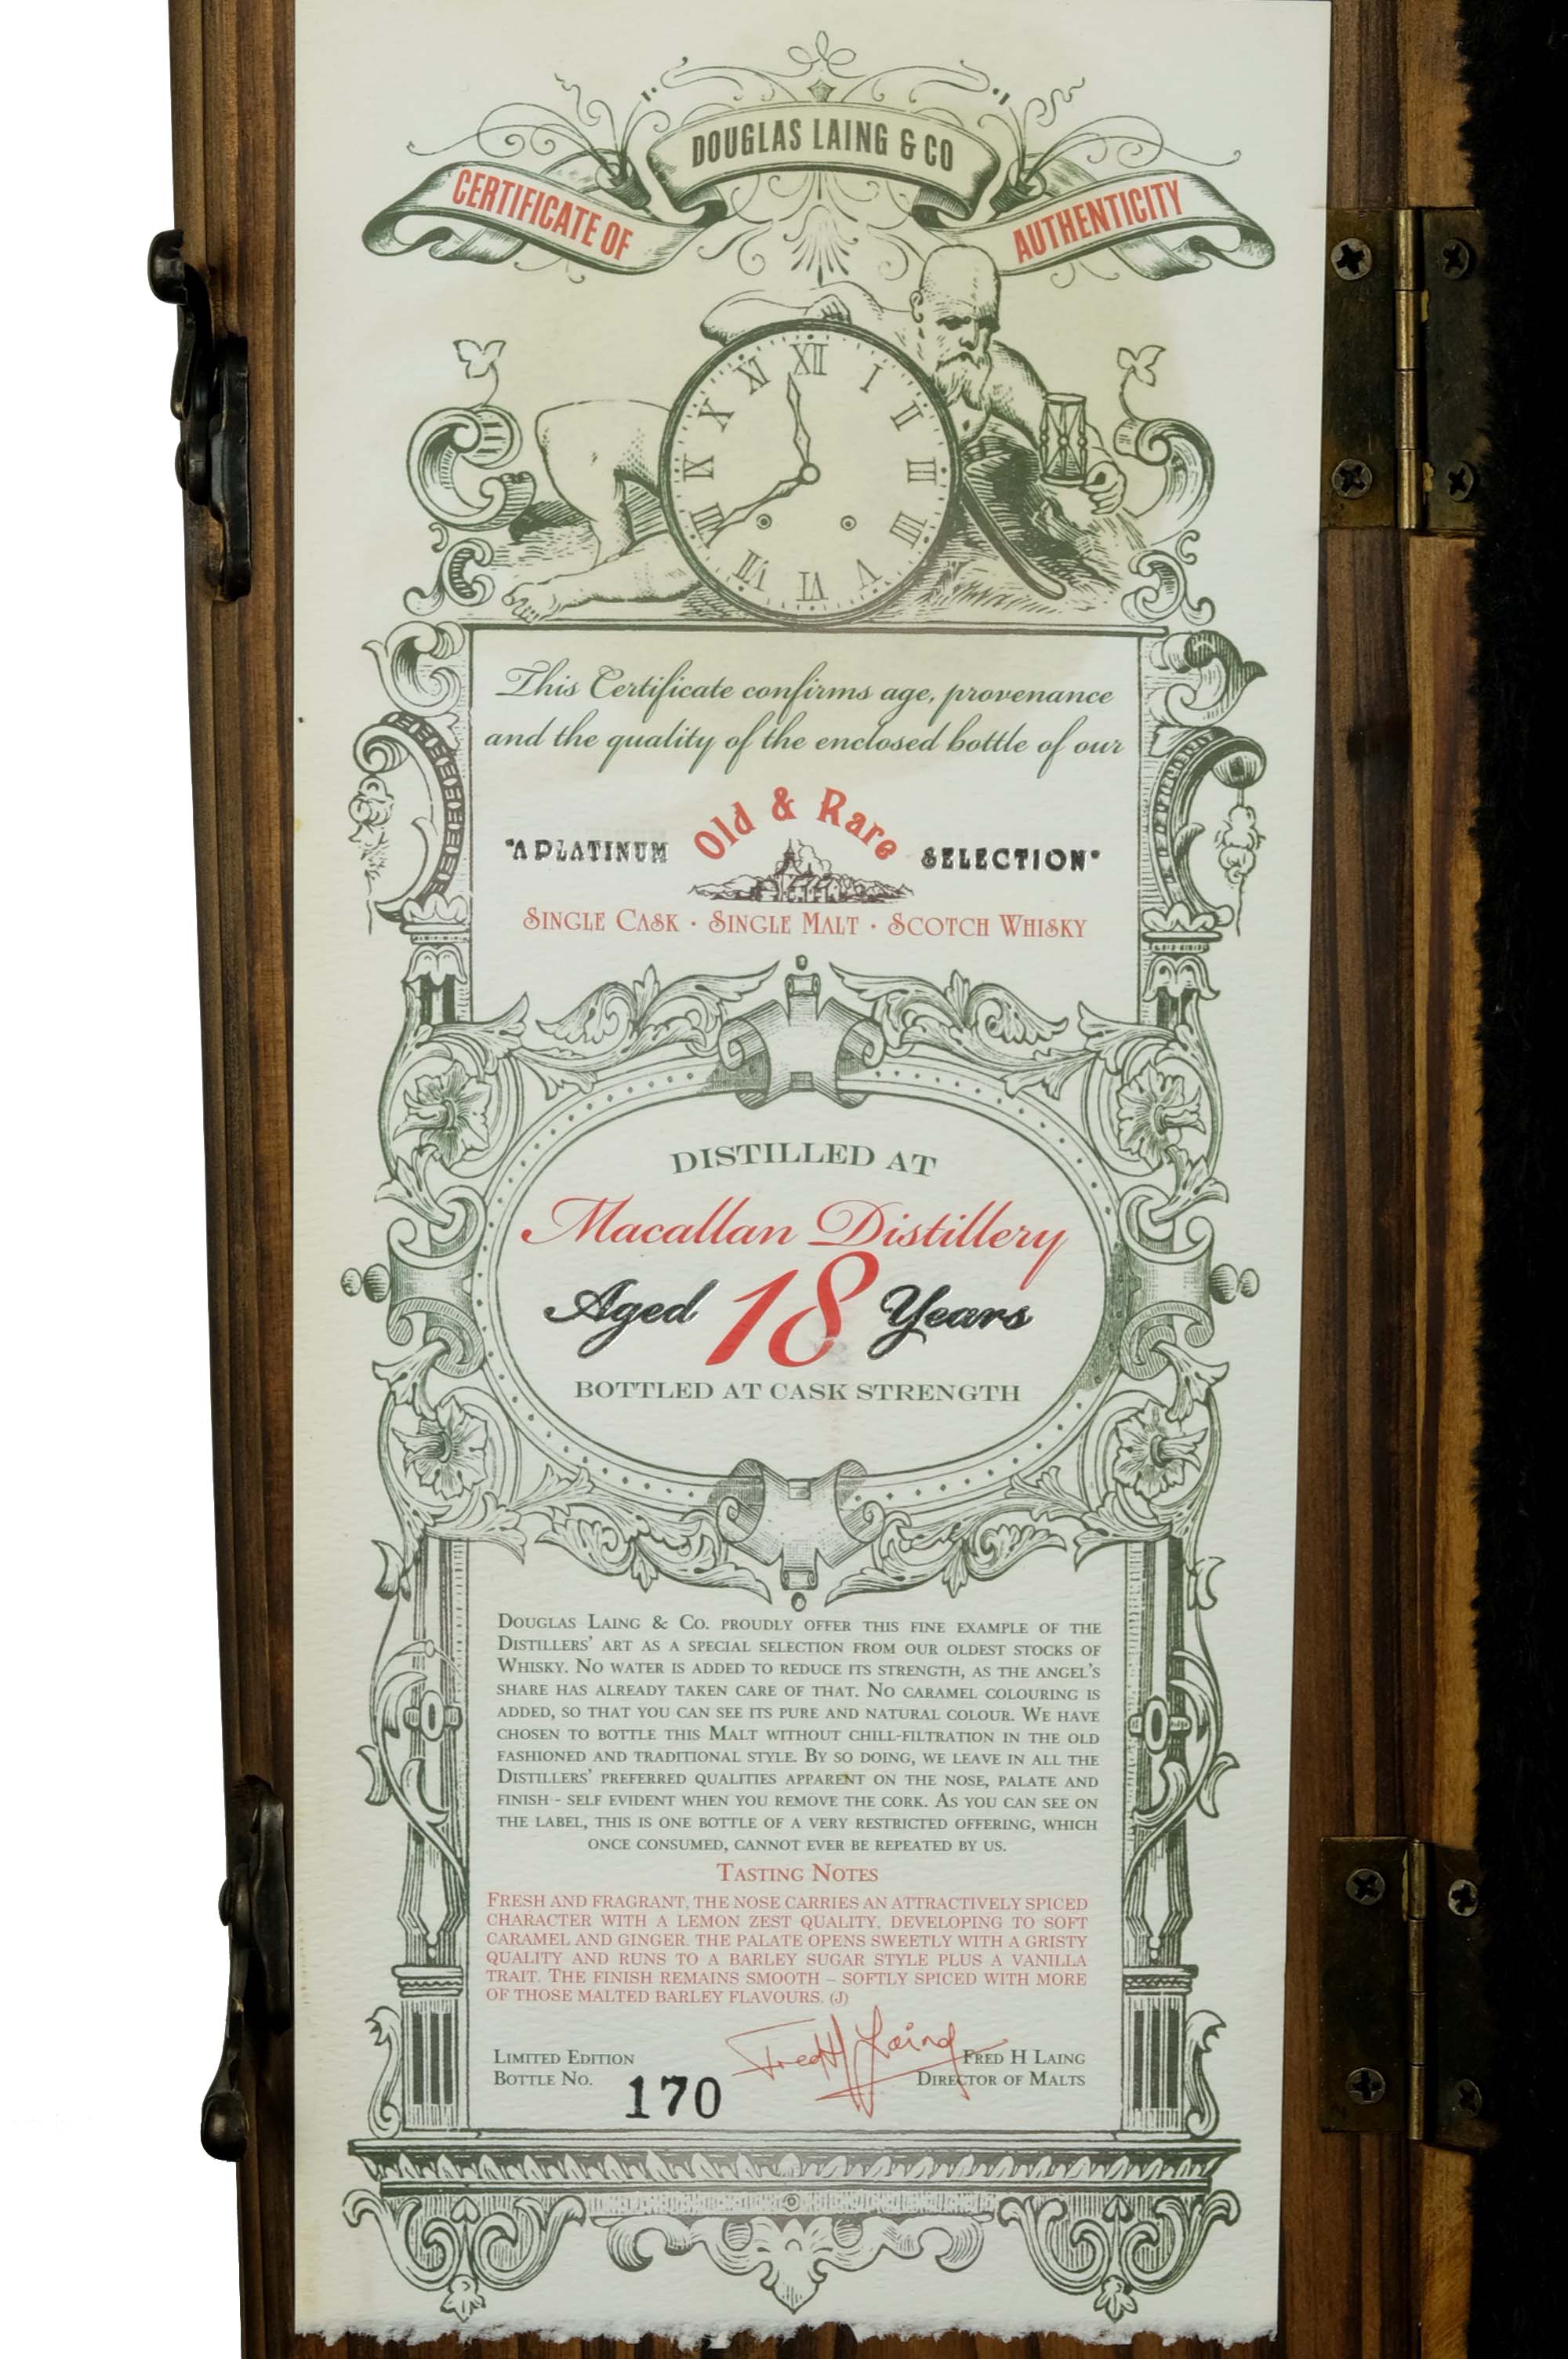 DOUGLAS LAING & CO
CERTIFICATE OF AUTHENTICITY
XII
I
II
III
IIII
V
VI
VII
VIII
IX
X
XI
This Certificate confirms age, provenance
and the quality of the enclosed bottle of our
Old & Rare
"A PLATINUM SELECTION"
SINGLE CASK · SINGLE MALT · SCOTCH WHISKY
DISTILLED AT
Macallan Distillery
Aged 18 Years
BOTTLED AT CASK STRENGTH
DOUGLAS LAING & CO. PROUDLY OFFER THIS FINE EXAMPLE OF THE
DISTILLERS' ART AS A SPECIAL SELECTION FROM OUR OLDEST STOCKS OF
WHISKY. NO WATER IS ADDED TO REDUCE ITS STRENGTH, AS THE ANGEL'S
SHARE HAS ALREADY TAKEN CARE OF THAT. NO CARAMEL COLOURING IS
ADDED, SO THAT YOU CAN SEE ITS PURE AND NATURAL COLOUR. WE HAVE
CHOSEN TO BOTTLE THIS MALT WITHOUT CHILL-FILTRATION IN THE OLD
FASHIONED AND TRADITIONAL STYLE. BY SO DOING, WE LEAVE IN ALL THE
DISTILLERS' PREFERRED QUALITIES APPARENT ON THE NOSE, PALATE AND
FINISH - SELF EVIDENT WHEN YOU REMOVE THE CORK. AS YOU CAN SEE ON
THE LABEL, THIS IS ONE BOTTLE OF A VERY RESTRICTED OFFERING, WHICH
ONCE CONSUMED, CANNOT EVER BE REPEATED BY US.
TASTING NOTES
FRESH AND FRAGRANT, THE NOSE CARRIES AN ATTRACTIVELY SPICED
CHARACTER WITH A LEMON ZEST QUALITY, DEVELOPING TO SOFT
CARAMEL AND GINGER. THE PALATE OPENS SWEETLY WITH A GRISTY
QUALITY AND RUNS TO A BARLEY SUGAR STYLE PLUS A VANILLA
TRAIT. THE FINISH REMAINS SMOOTH – SOFTLY SPICED WITH MORE
OF THOSE MALTED BARLEY FLAVOURS. (J)
Fred H Laing
LIMITED EDITION
BOTTLE NO. 170
FRED H LAING
DIRECTOR OF MALTS